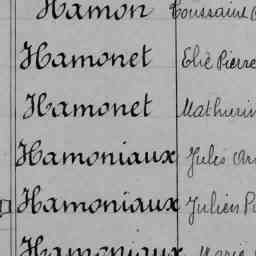 Hamon Toussaint
Hamonet Elie Pierre
Hamonet Mathurin
Hamoniaux Jules
Hamoniaux Julien
Hamoniaux Marie